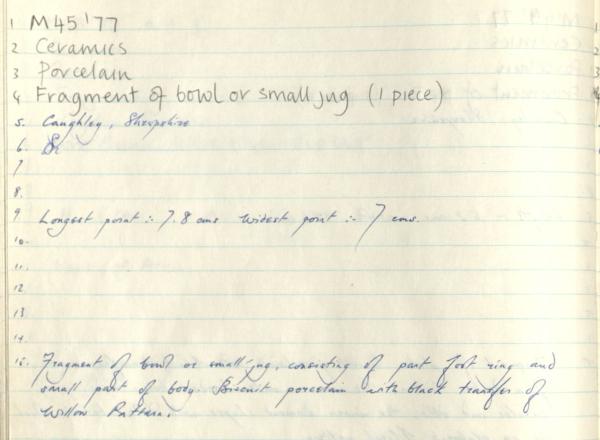 1 M45 '77
2 Ceramics
3 Porcelain
4 Fragment of bowl or small jug (1 piece)
5. Caughley, Shropshire
6.
7
8.
9 Longest point :- 7.8 cms Widest point :- 7 cms.
10.
11.
12
13.
14.
15. Fragment of bowl or small jug, consisting of part foot ring and
small part of body. Biscuit porcelain with black transfer of
Willow Pattern.